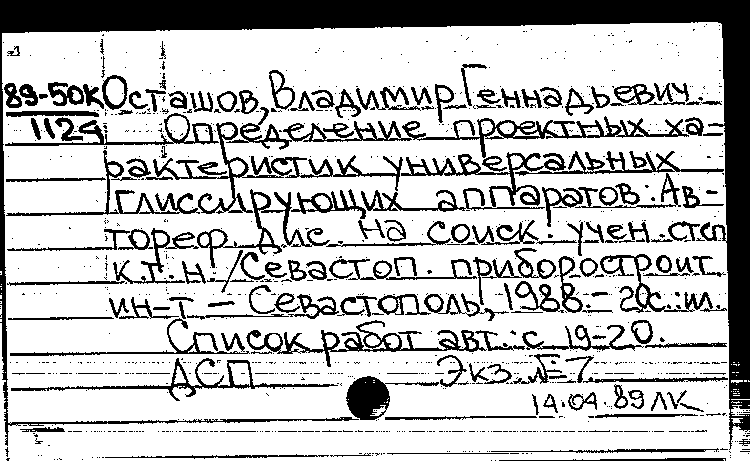 89-50к Осташов, Владимир Геннадьевич.
1124 Определение проектных ха-
рактеристик универсальных
глиссирующих аппаратов: Ав-
тореф. дис. на соиск. учен. степ
к.т.н. / Севастоп. приборостроит.
ин-т – Севастополь, 1988. – 20с.: ил.
Список работ авт.: с 19-20.
ДСП Экз. № 7
14.04.89 ЛК